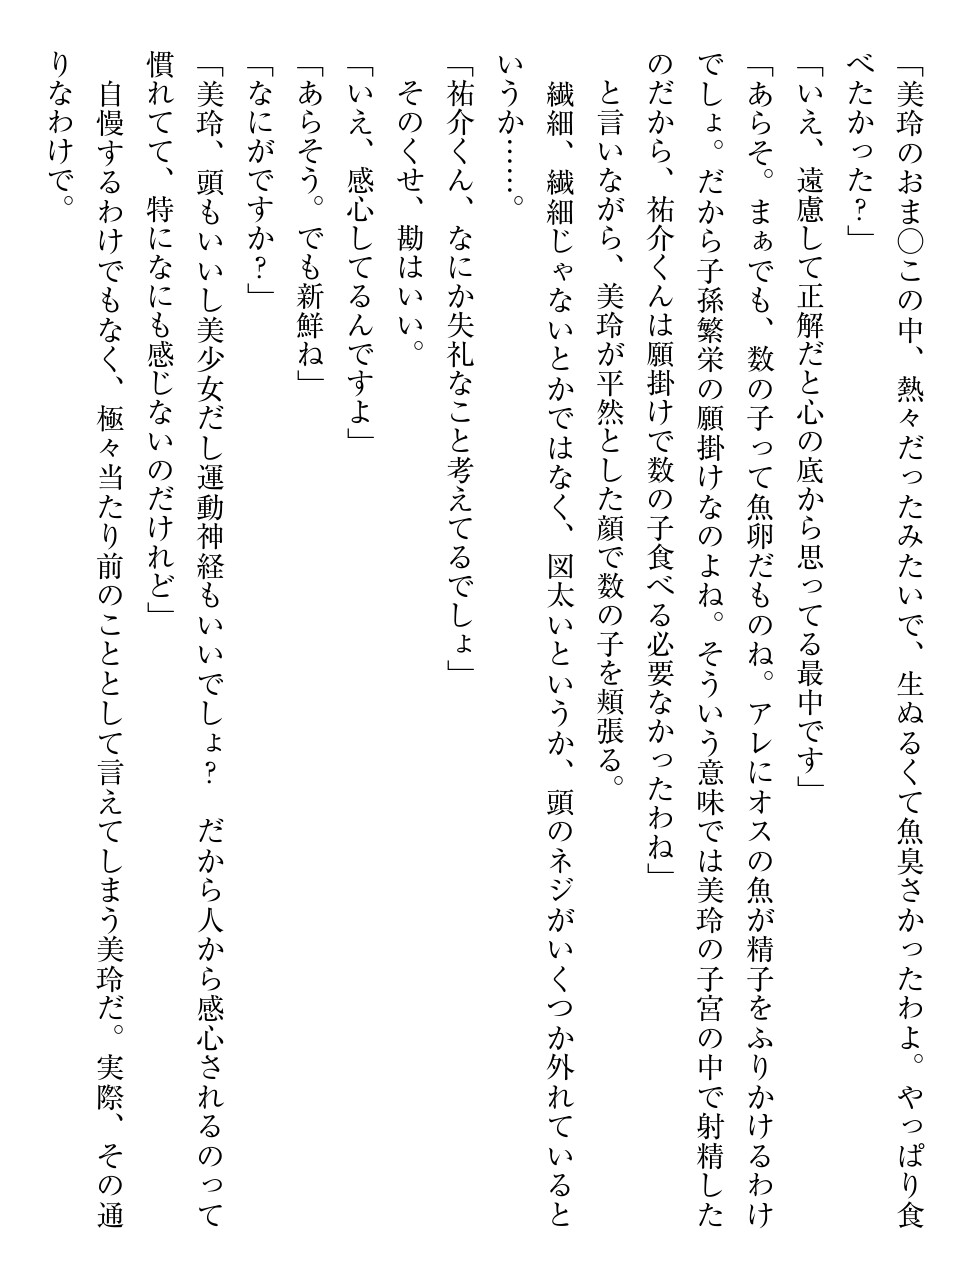 「美玲のおま〇この中、熱々だったみたいで、生ぬるくて魚臭さかったわよ。やっぱり食
べたかった？」
「いえ、遠慮して正解だと心の底から思ってる最中です」
「あらそ。まぁでも、数の子って魚卵だものね。アレにオスの魚が精子をふりかけるわけ
でしょ。だから子孫繁栄の願掛けなのよね。そういう意味では美玲の子宮の中で射精した
のだから、祐介くんは願掛けで数の子食べる必要なかったわね」
　と言いながら、美玲が平然とした顔で数の子を頬張る。
　繊細、繊細じゃないとかではなく、図太いというか、頭のネジがいくつか外れていると
いうか……。
「祐介くん、なにか失礼なこと考えてるでしょ」
　そのくせ、勘はいい。
「いえ、感心してるんですよ」
「あらそう。でも新鮮ね」
「なにがですか？」
「美玲、頭もいいし美少女だし運動神経もいいでしょ？　だから人から感心されるのって
慣れてて、特になにも感じないのだけれど」
　自慢するわけでもなく、極々当たり前のこととして言えてしまう美玲だ。実際、その通
りなわけで。